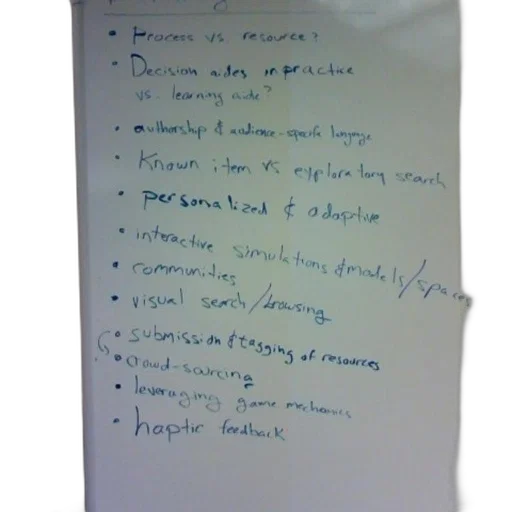 • Process vs resource?
• Decision aides in practice
vs. learning aide?
• authorship & audience-specific language
• Known item vs exploratory search
• personalized & adaptive
• interactive simulations & models/spaces
• communities
• visual search/browsing
• submission & tagging of resources
• crowd-sourcing
• leveraging game mechanics
• haptic feedback